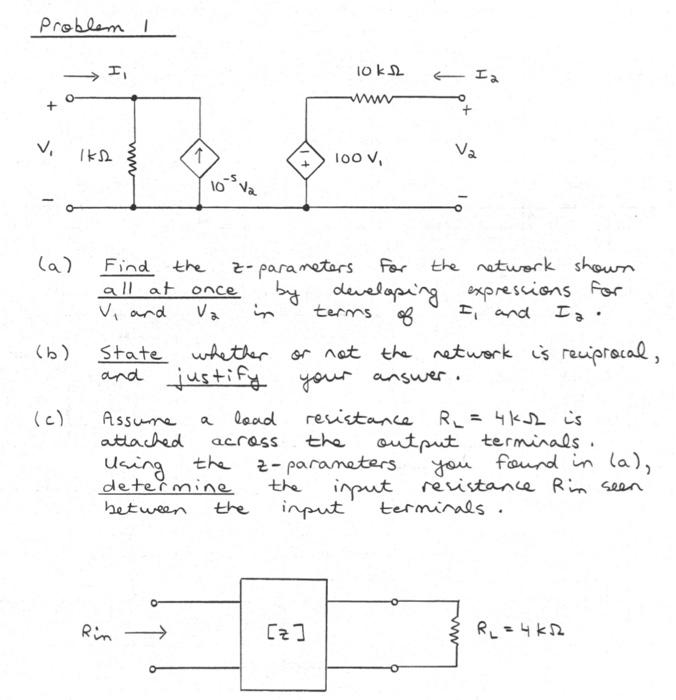 Problem 1
→ I₁
10 kΩ
← I₂
+
+
V₁
1kΩ
↑
10⁻⁵ V₂
-
+
100 V₁
V₂
-
-
(a) Find the z-parameters for the network shown
all at once by developing expressions for
V₁ and V₂ in terms of I₁ and I₂.
(b) State whether or not the network is reciprocal,
and justify your answer.
(c) Assume a load resistance R_L = 4kΩ is
attached across the output terminals.
Using the z-parameters you found in (a),
determine the input resistance Rin seen
between the input terminals.
Rin →
[z]
R_L = 4kΩ